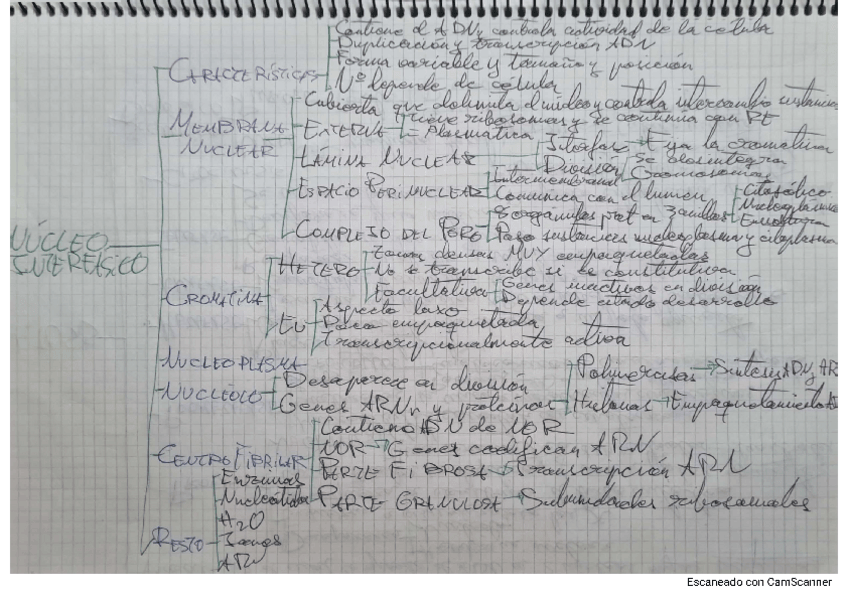 Contiene el ADN y controla actividad de la célula
Duplicación y transcripción ADN
Forma variable y tamaño y posición
CARACTERÍSTICAS
Nº depende de célula
Cubierta que delimita el núcleo y controla intercambio sustancias
MEMBRANA
NUCLEAR
EXTERNA
Tiene ribosomas y se continua con RE
= Plasmática
LÁMINA NUCLEAR
Interfase → Fija la cromatina
División
Se desintegra
Cromosomas
ESPACIO PERINUCLEAR
Intermembranal
Comunica con el lumen
COMPLEJO DEL PORO
Citosólico
Paso sustancias nucleoplasma y citoplasma
NÚCLEO
INTERFÁSICO
CROMATINA
HETERO
Zonas densas MUY empaquetadas
No se transcribe si es constitutiva
Facultativa
Genes inactivos en división
Depende estado desarrollo
EU
Aspecto laxo
Poco empaquetada
Transcripcionalmente activa
NUCLEOPLASMA
NUCLEOLO
Desaparece en división
Genes ARNr y proteínas
Polimerasas → Síntesis ADN y AR
Histonas → Empaquetamiento
CENTRO FIBRILAR
Contiene ADN de NOR
NOR → Genes codifican ARN
PARTE FIBROSA → Transcripción ARN
PARTE GRANULOSA → Subunidades ribosomales
RESTO
Enzimas
Nucleótidos
H2O
Iones
ARN
Escaneado con CamScanner